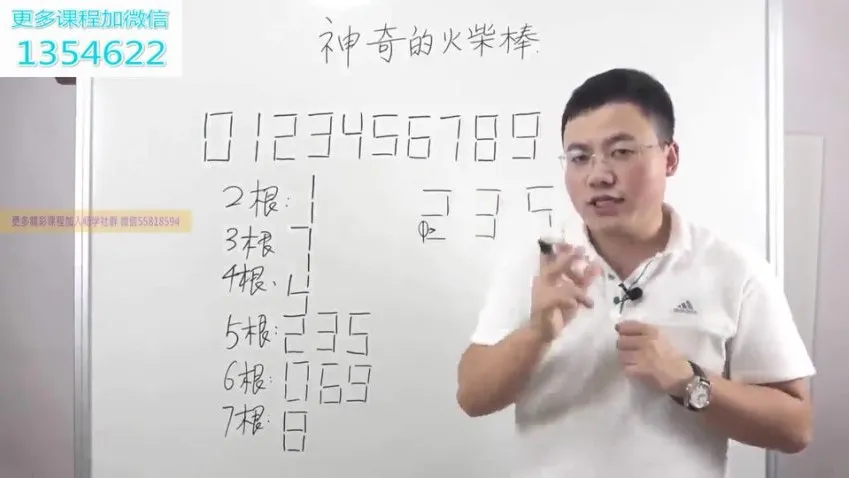 更多课程加微信
1354622
神奇的火柴棒
0123456789
2根: 1
235
更多精彩课程加入稻学社群 微信55818594
3根 7
4根: 4
5根: 235
6根: 069
7根: 8
adidas